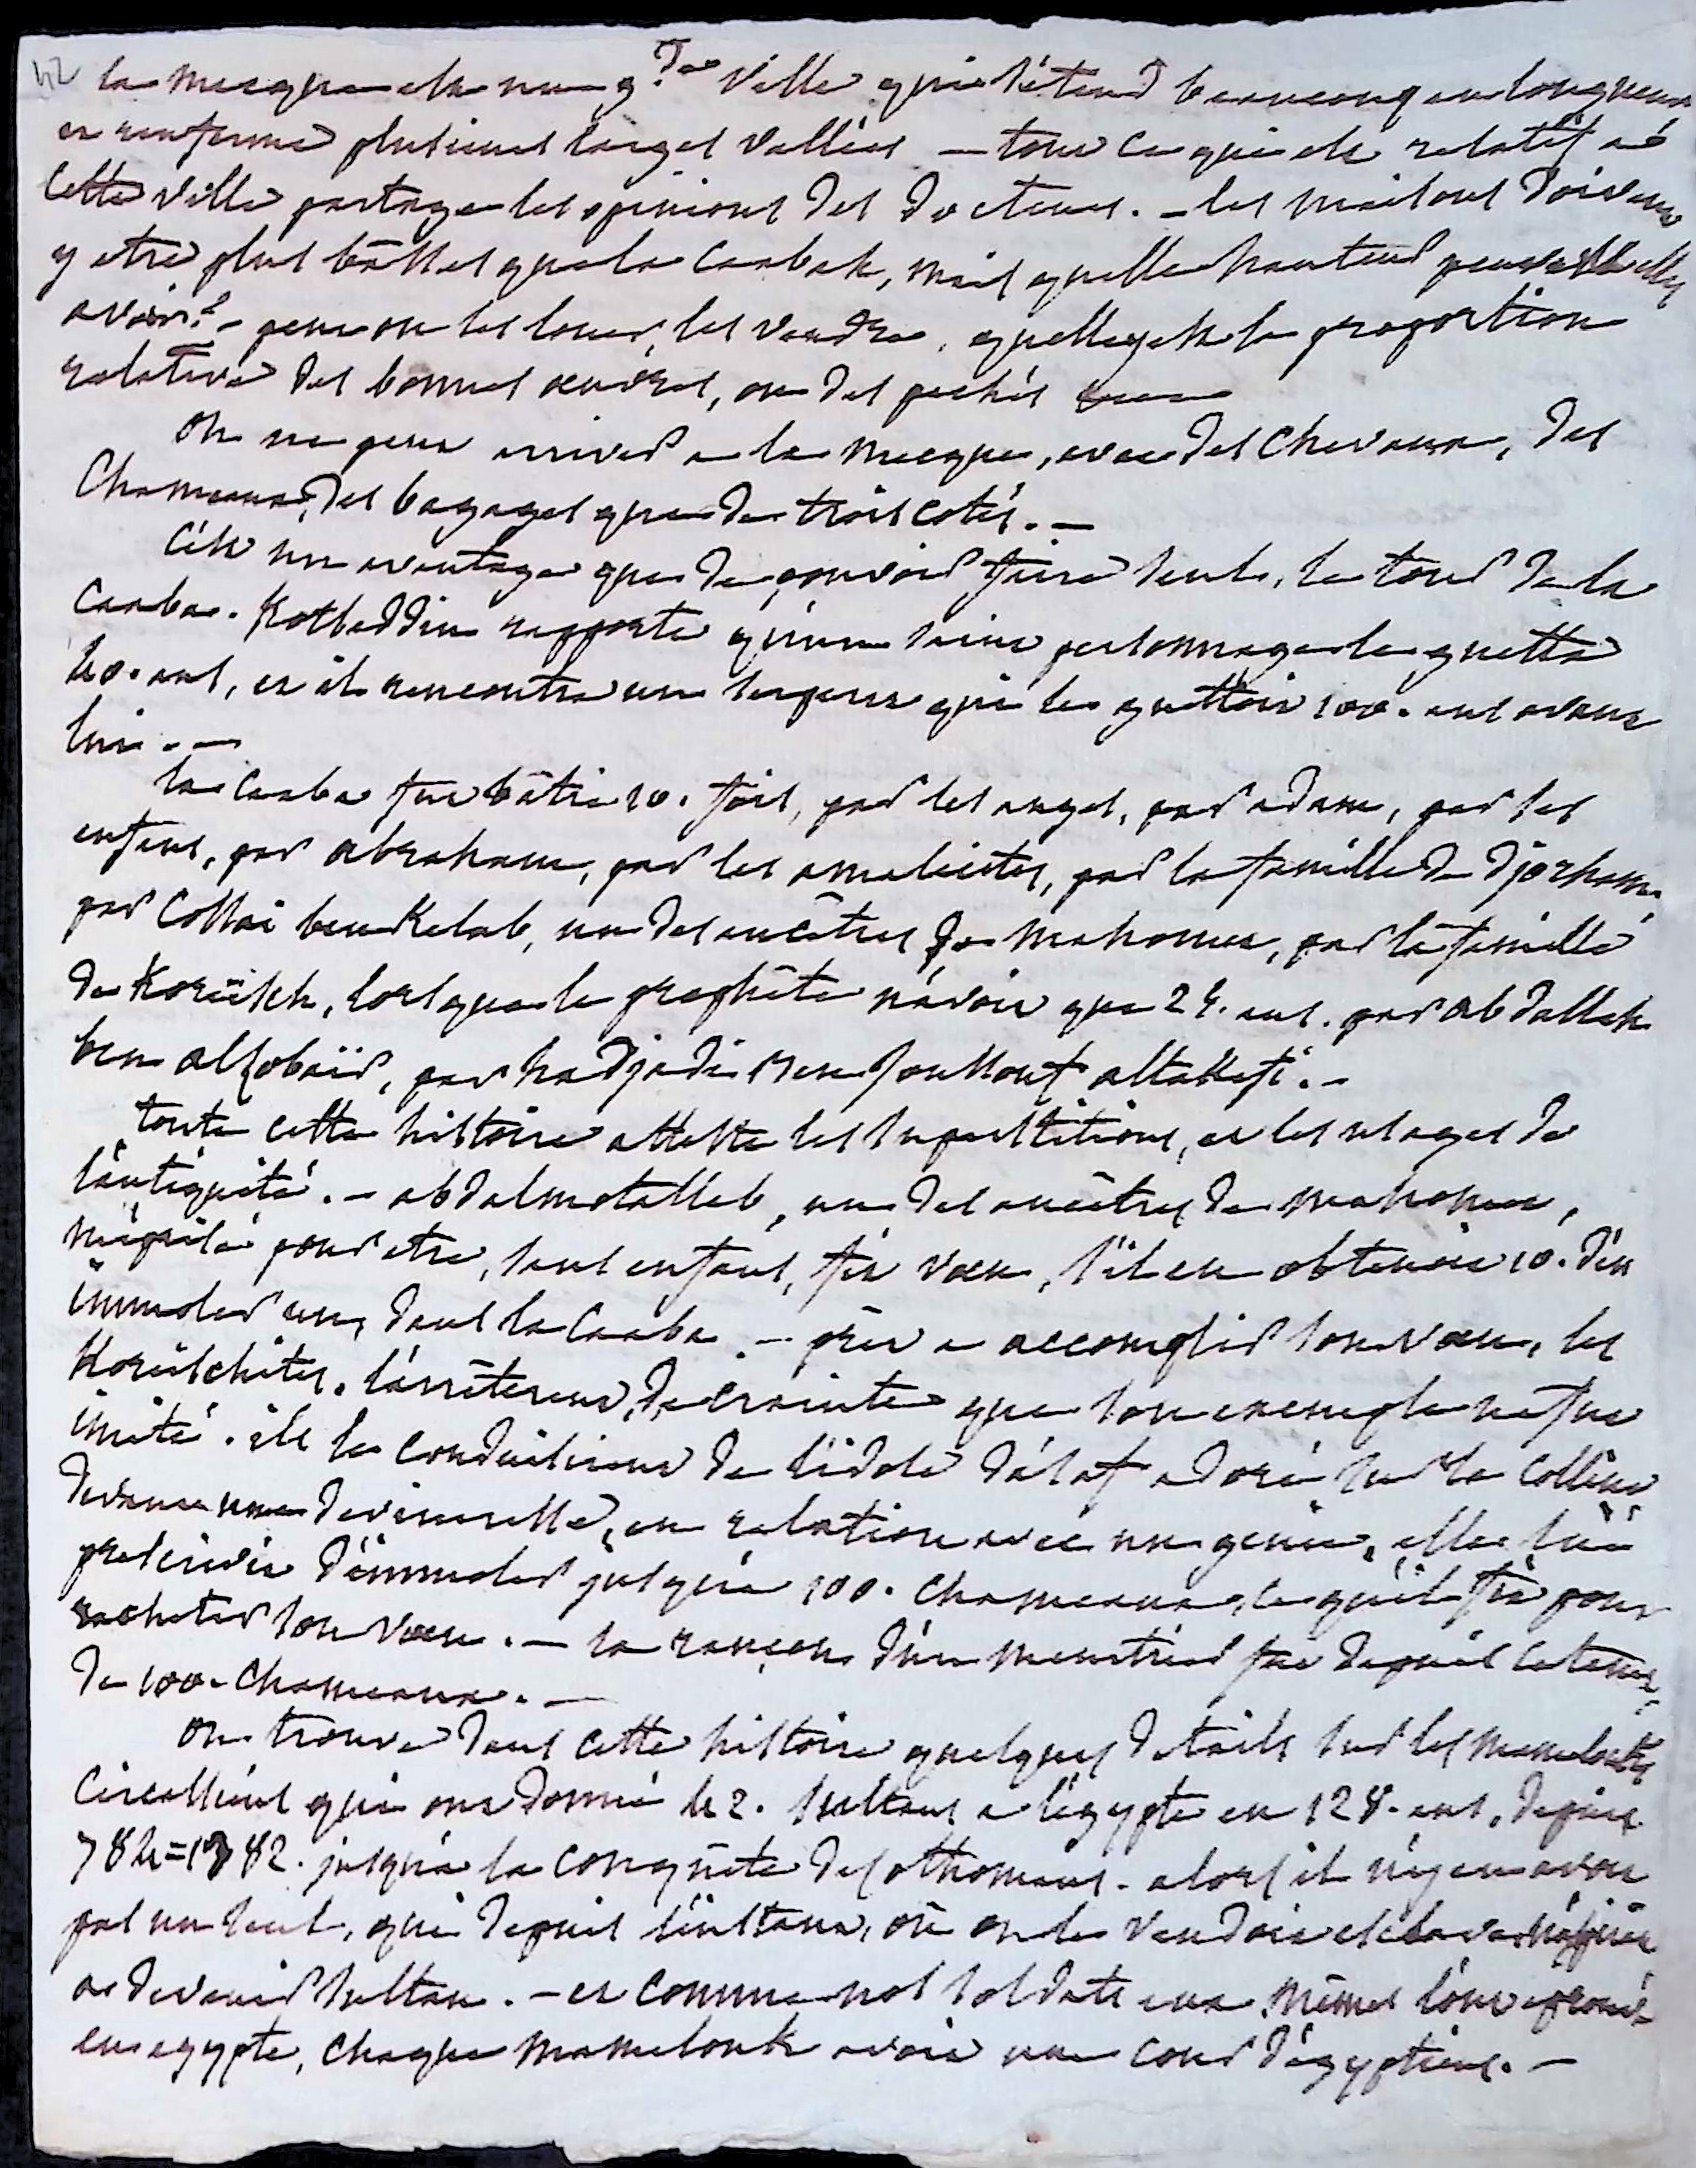 42 la mecque est une g.de ville qui s'étend beaucoup en longueur
et renferme plusieurs larges vallées — tout ce qui est relatif à
cette ville partage les opinions des docteurs. — les maisons doivent
y etre plus basses que la Caabah, mais quelle hauteur peuvent elles
avoir? — peut on les louer, les vendre, quelle est la proportion
relative des bonnes œuvres, ou des pechés
on ne peut arriver a la mecque, avec des chevaux, des
Chameaux, des bagages que de trois cotés. —
C'est un avantage que de pouvoir faire seul, le tour de la
Caaba. Kotbeddin rapporte qu'un saint personnage le guetta
40. ans, et il rencontra un serpent qui le guettoit 100. ans avant
lui. —
la Caaba fut bâtie 10. fois, par les anges, par adam, par ses
enfans, par abraham, par les amalecites, par la famille de Djorham,
par Cossai ben Kelab, un des ancêtres de mahomet, par la famille
de Koreïsch, lorsque le prophète n'avoit que 25. ans. par abdallah
ben alzobaïr, par hadjadj ben Joussouf altakefi. —
toute cette histoire atteste les superstitions, et les usages de
l'antiquité. — abdalmotalleb, un des ancêtres de mahomet,
méprisé pour etre, sans enfans, fit vœu, s'il en obtenoit 10. d'en
immoler un, dans la Caaba. — prêt a accomplir son vœu, les
Koreïschites l'arrêterent, de crainte que son exemple ne fut
imité. ils le conduisirent de l'idole adoré sur la colline
devant une devineresse, en relation avec un genie, elle lui
prescrivit d'immoler jusqu'a 100. chameaux, ce qu'il fit pour
racheter son vœu. — la rançon d'un meurtrier fut depuis ce tems,
de 100. chameaux. —
on trouve dans cette histoire quelques details sur les mamelouks
Circassiens qui ont donné 22. sultans a l'egypte en 128. ans, depuis
784=1382. jusqu'a la conquête des othomans. alors il n'y en avoit
pas un seul, qui depuis l'instant, où on le vendoit esclave n'aspirât
a devenir sultan. — et comme nos soldats eux mêmes l'ont eprouvé
en egypte, chaque mamelouk avoit une cour d'égyptiens. —